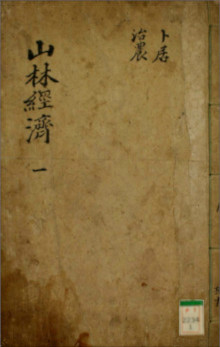 卜居
治農
山林經濟
一